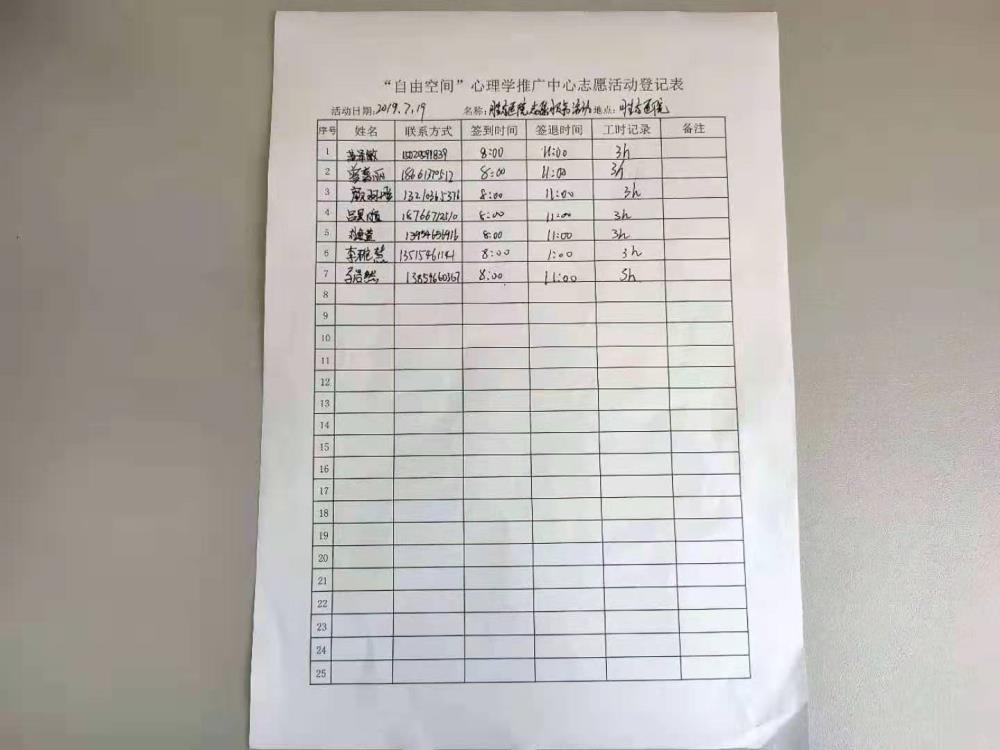 “自由空间”心理学推广中心志愿活动登记表
活动日期:2019.7.19 名称: 医院志愿服务活动 地点: 医院
序号 姓名 联系方式 签到时间 签退时间 工时记录 备注
1 8:00 11:00 3h
2 18661379512 8:00 11:00 3h
3 13210365376 8:00 11:00 3h
4 18766712510 8:00 11:00 3h
5 13954656916 8:00 11:00 3h
6 李 慧 13515461141 8:00 1:00 3h
7 浩然 13854660367 8:00 11:00 3h
8
9
10
11
12
13
14
15
16
17
18
19
20
21
22
23
24
25